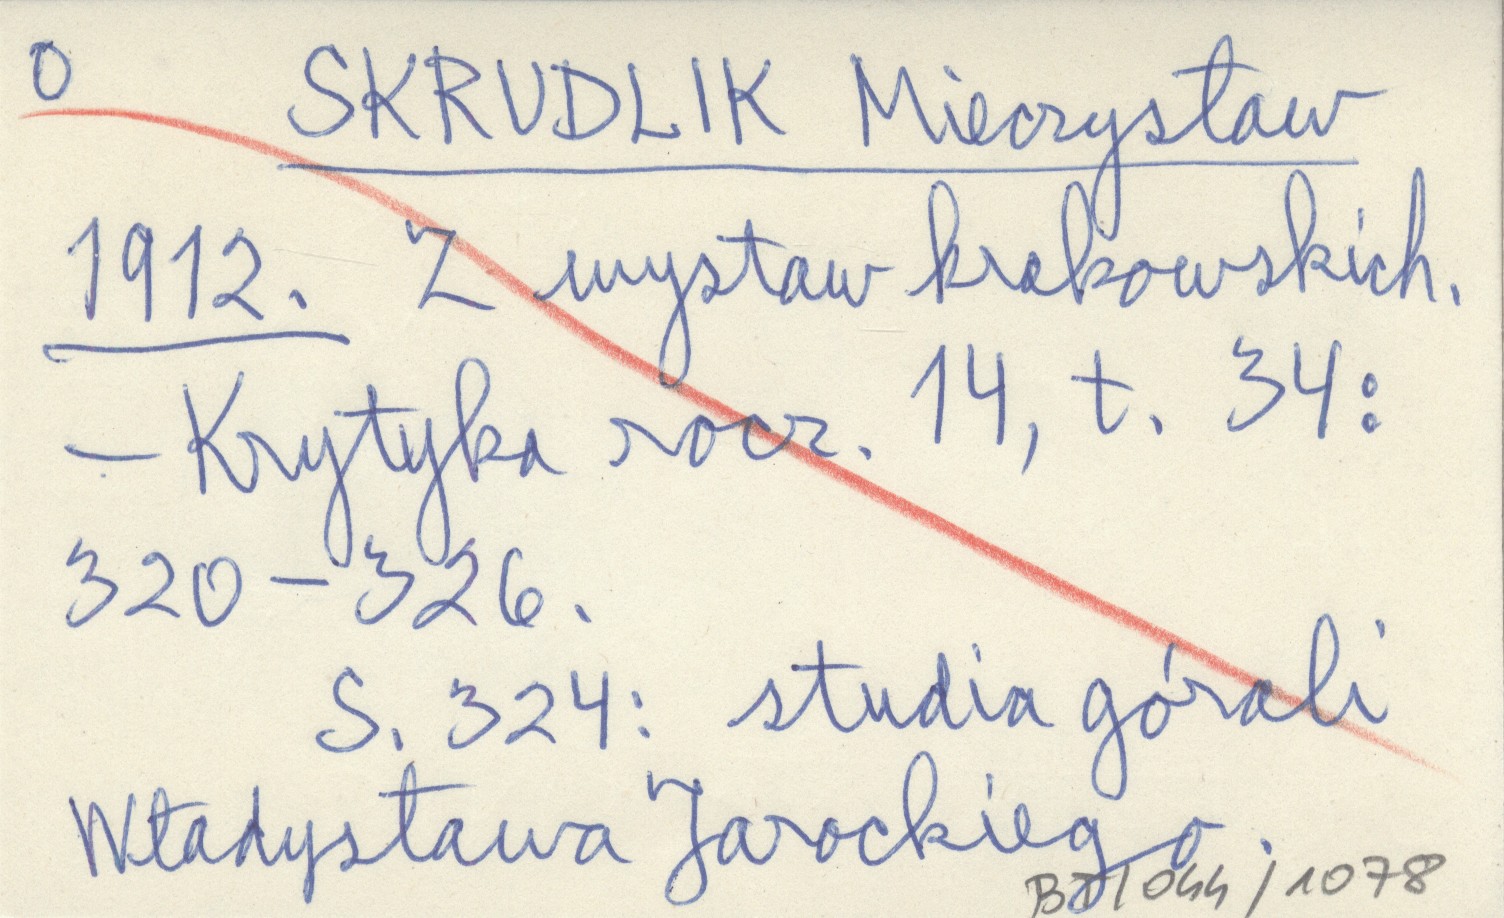 O SKRUDLIK Mieczysław
1912. Z wystaw krakowskich.
– Krytyka rocz. 14, t. 34:
320–326.
S. 324: studia górali
Władysława Jarockiego.
/ 1078